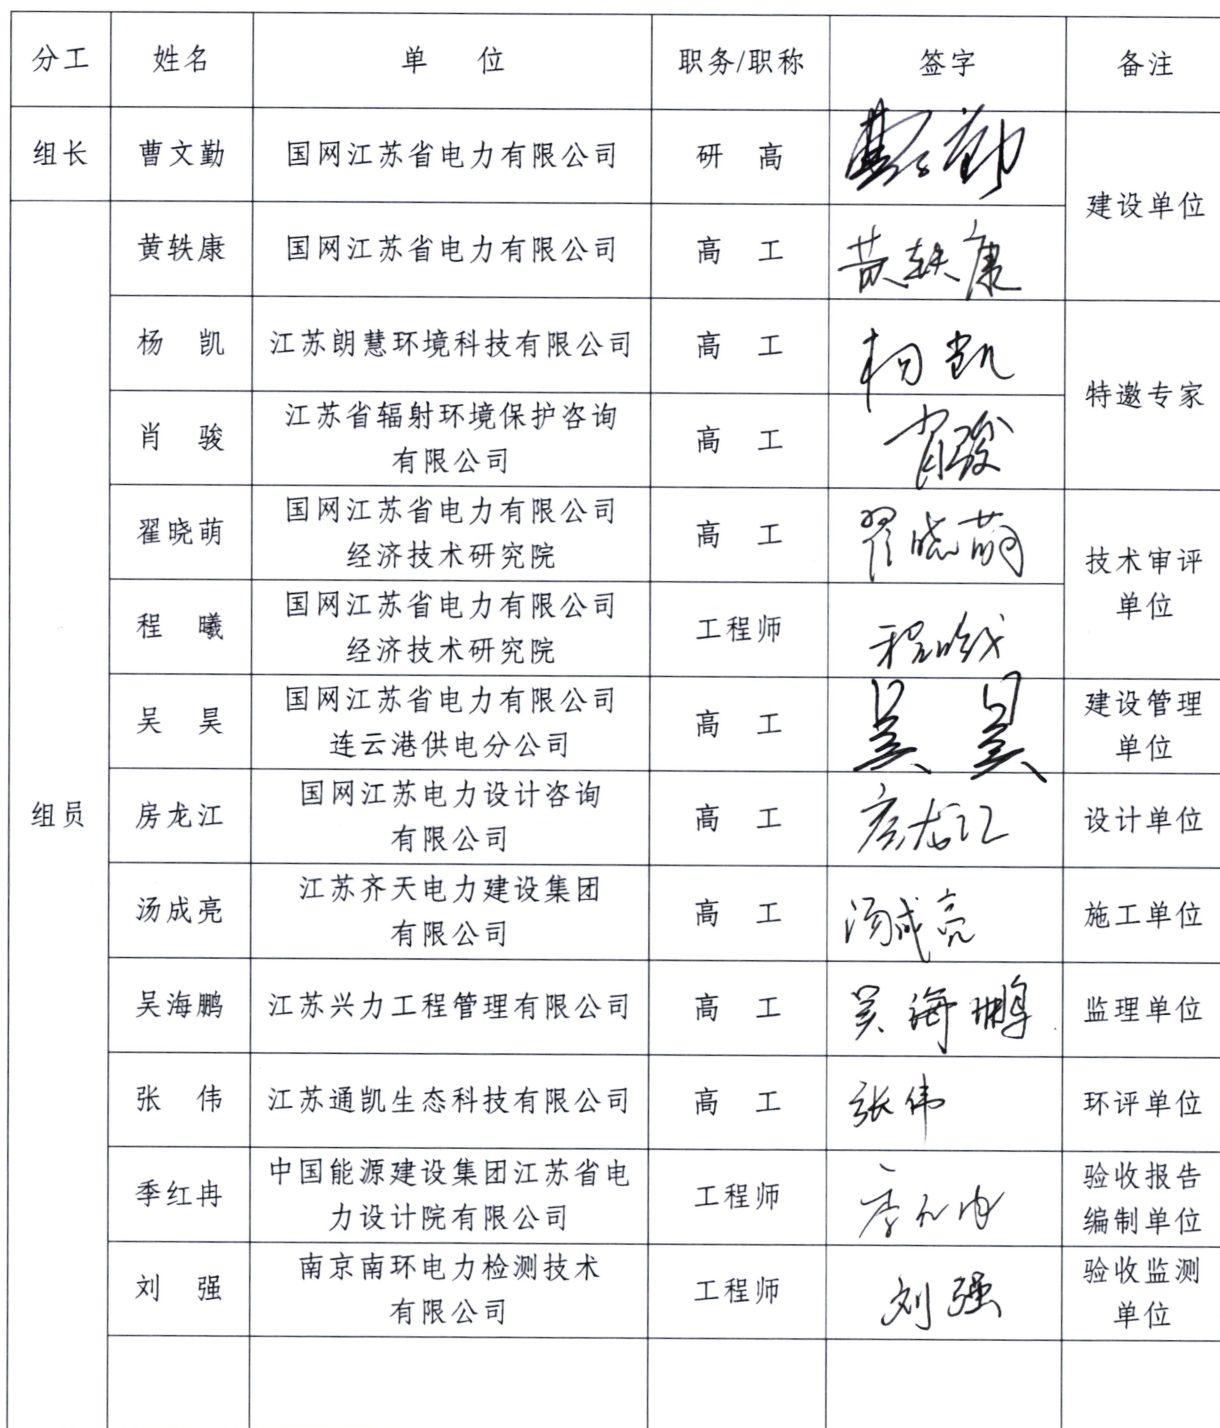 分工 姓名 单 位 职务/职称 签字 备注
组长 曹文勤 国网江苏省电力有限公司 研 高 曹文勤 建设单位
组员 黄轶康 国网江苏省电力有限公司 高 工 黄轶康
杨 凯 江苏朗慧环境科技有限公司 高 工 杨凯 特邀专家
肖 骏 江苏省辐射环境保护咨询
有限公司 高 工 肖骏
翟晓萌 国网江苏省电力有限公司
经济技术研究院 高 工 翟晓萌 技术审评
单位
程 曦 国网江苏省电力有限公司
经济技术研究院 工程师 程曦
吴 昊 国网江苏省电力有限公司
连云港供电分公司 高 工 吴 昊 建设管理
单位
房龙江 国网江苏电力设计咨询
有限公司 高 工 房龙江 设计单位
汤成亮 江苏齐天电力建设集团
有限公司 高 工 汤成亮 施工单位
吴海鹏 江苏兴力工程管理有限公司 高 工 吴海鹏 监理单位
张 伟 江苏通凯生态科技有限公司 高 工 张伟 环评单位
季红冉 中国能源建设集团江苏省电
力设计院有限公司 工程师 季红冉 验收报告
编制单位
刘 强 南京南环电力检测技术
有限公司 工程师 刘强 验收监测
单位